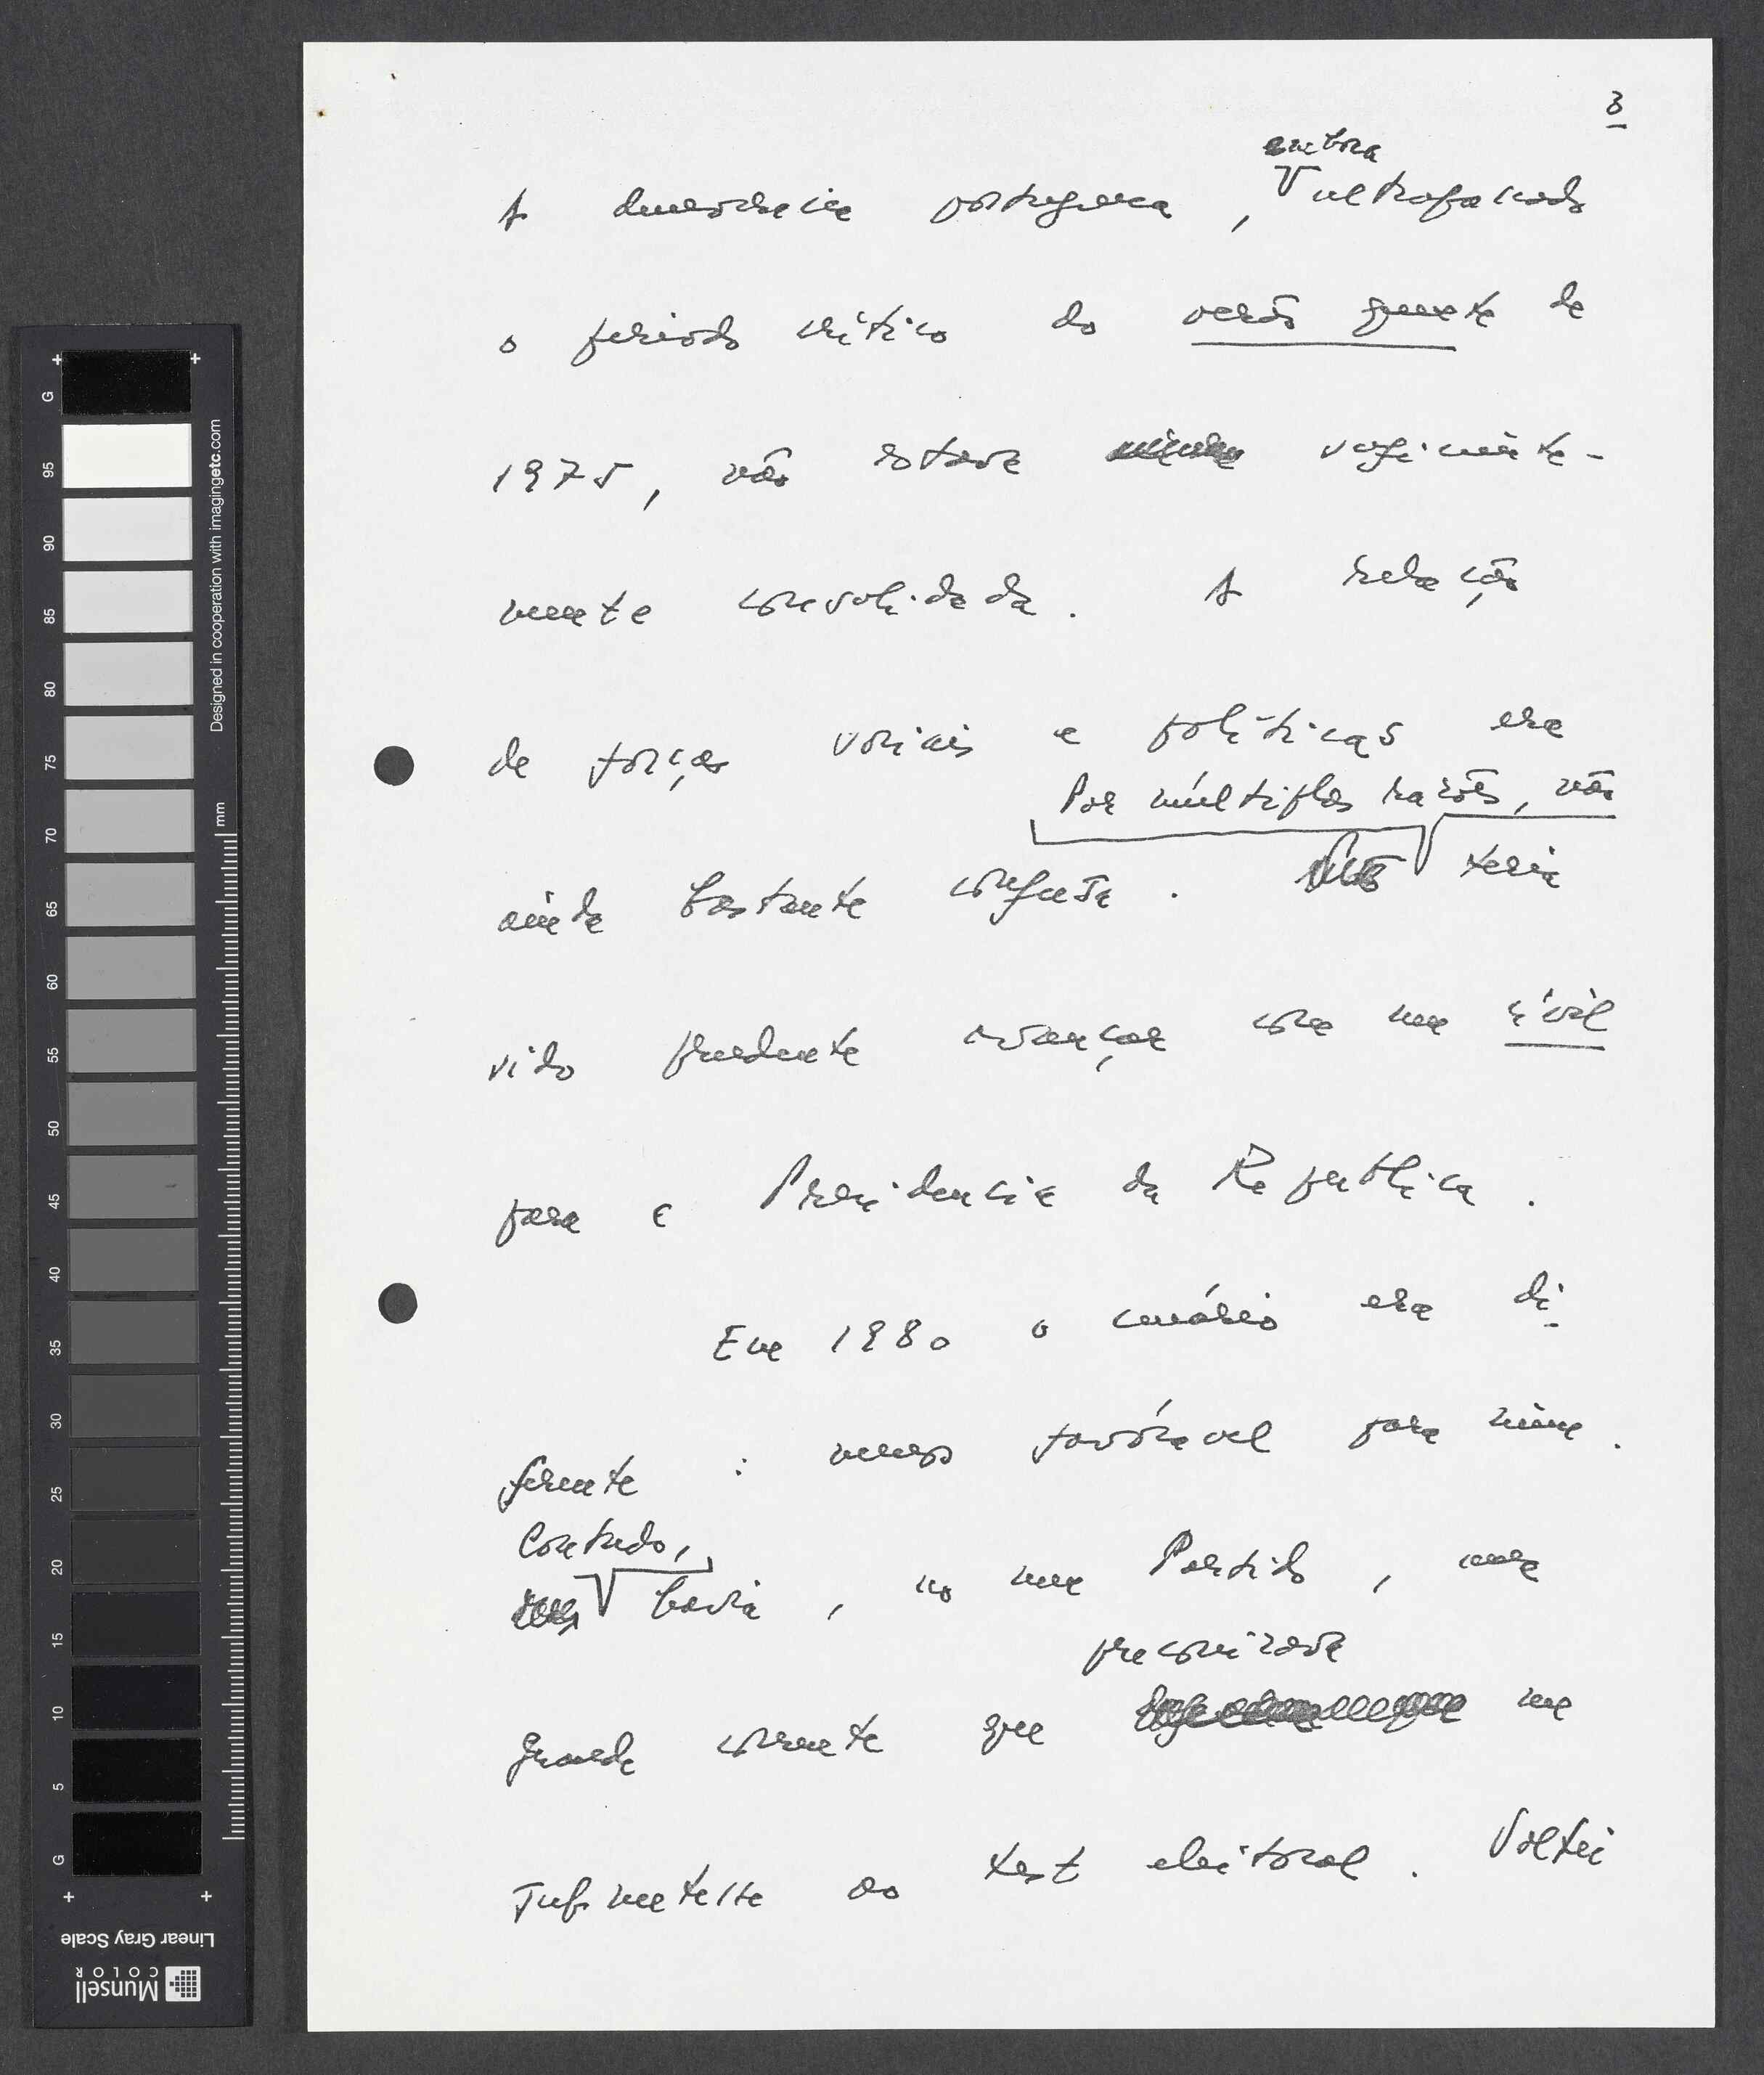 3
embora
A democracia portuguesa, ultrapassado
o período crítico do verão quente de
1975, não estava suficiente-
mente consolidada. A relação
de forças sociais e políticas era
Por múltiplas razões, não
ainda bastante confusa. teria
sido prudente avançar com um civil
para a Presidência da República.
Em 1980 o cenário era di
ferente: menos favorável para mim.
Contudo,
havia, no meu Partido, uma
preconizava
grande corrente que me
submetesse ao test eleitoral. Voltei
G
95
90
85
80
75
70
65
60
55
50
45
40
35
30
25
20
15
10
5
G
mm
Designed in cooperation with imagingetc.com
Linear Gray Scale
Munsell
COLOR